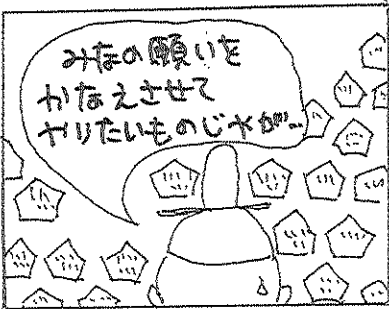 みなの願いを
かなえさせて
やりたいものじゃが…